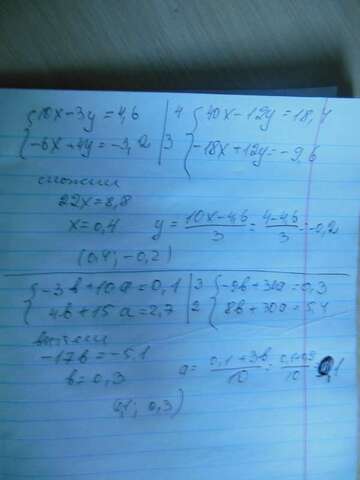 {10x-3y=4,6 | 4 {40x-12y=18,4
{-6x+4y=-3,2 | 3 {-18x+12y=-9,6
сложили
22x=8,8
x=0,4 y=\frac{10x-4,6}{3}=\frac{4-4,6}{3}=-0,2
(0,4; -0,2)
{-3b+10a=0,1 | 3 {-9b+30a=0,3
{4b+15a=2,7 | 2 {8b+30a=5,4
вычтем
-17b=-5,1
b=0,3 a=\frac{0,1+3b}{10}=\frac{0,1+0,9}{10}=0,1
; 0,3)